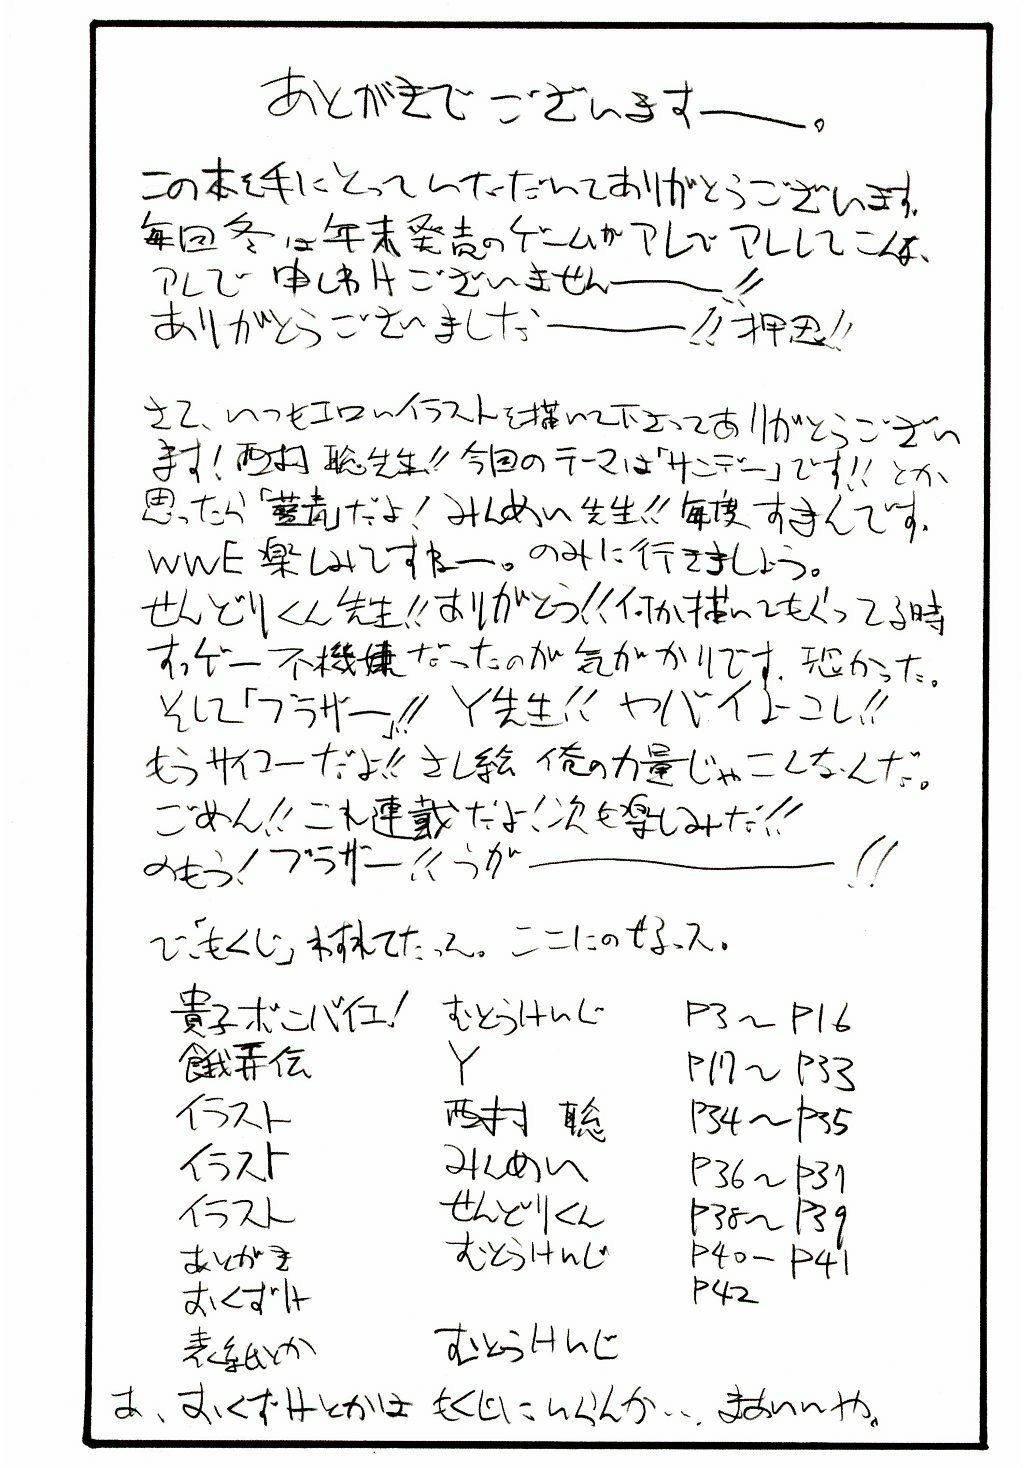 あとがきでございますー。
この本を手にとっていただいてありがとうございます。
毎回冬は年末発売のゲームがアレでアレしてこんな、
アレで申しわけございませんー!!
ありがとうございましたー!!押忍!!
さて、いつもエロいイラストを描いて下さってありがとうござい
ます!西村聡先生!!今回のテーマは「サンデー」です!!とか
思ったら「藍青」だよ!みんめい先生!!毎度すまんです。
WWE楽しみですねー。のみに行きましょう。
せんどりくん先生!!ありがとう!!何か描いてもぐってる時
すっげー不機嫌だったのが気がかりです。恐かった。
そして「ブラザー」!!Y先生!!ヤバイよーコレ!!
もうサイコーだよ!!さし絵俺の力量じゃこんなんだ。
ごめん!!これ連載だよ!次も楽しみだ!!
のもう!ブラザー!!うがー!!
で、「もくじ」わすれてたっス。ここにのせるっス。
貴子ボンバイエ! むとうけいじ P3〜P16
餓弄伝 Y P17〜P33
イラスト 西村 聡 P34〜P35
イラスト みんめい P36〜P37
イラスト せんどりくん P38〜P39
あとがき むとうけいじ P40ーP41
おくずけ P42
表紙とか むとうけいじ
あ、おくずけとかはもくじにいらんか… まあいいや。